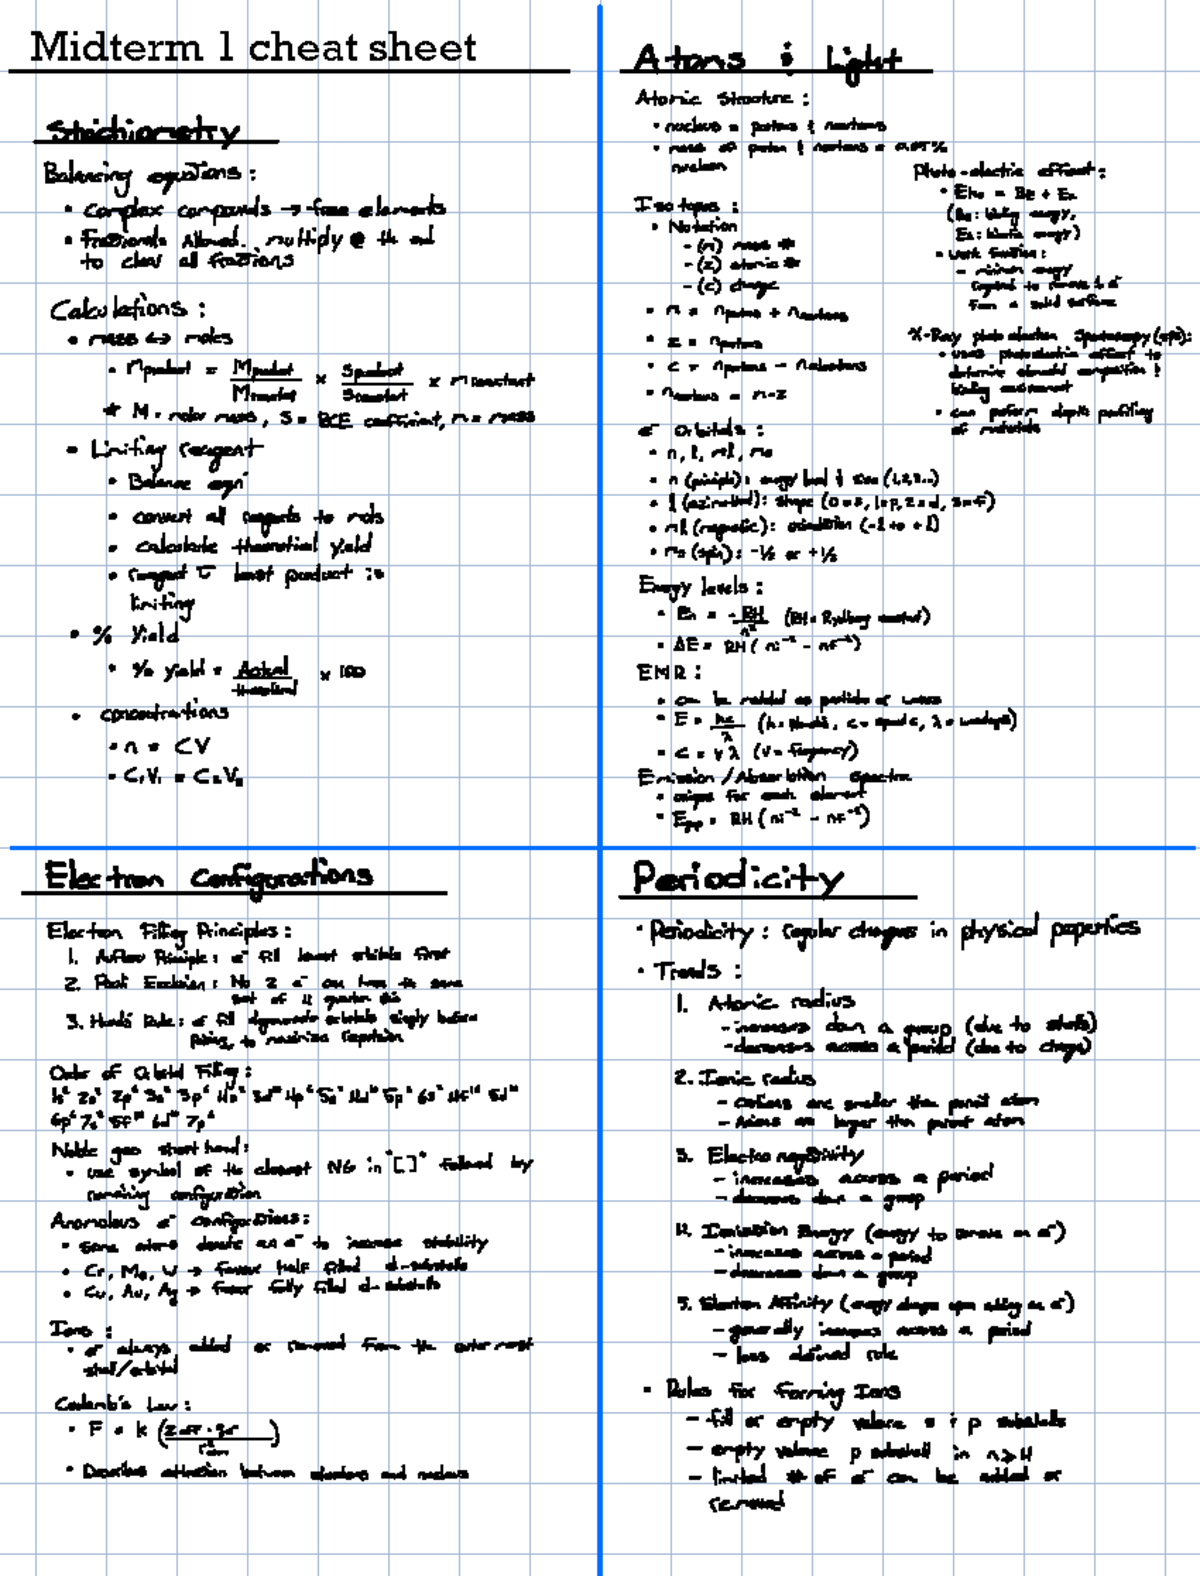 Midterm 1 cheat sheet
Stoichiometry
Balancing equations :
• Complex compounds → free elements
• fractionals allowed. multiply @ the end
to clear all fractions
Calculations :
• mass ↔ moles
• m product = M product / M reactant × S product / S reactant × m reactant
* M = molar mass, S = BCE coefficient, m = mass
• Limiting reagent
• Balance eqn
• convert all reagents to mols
• calculate theoretical yield
• reagent least product is
limiting
• % Yield
• % yield = Actual / theoretical × 100
• concentrations
• n = CV
• C₁V₁ = C₂V₂
Atoms & Light
Atomic Structure :
• nucleus = protons & neutrons
• mass of proton & neutrons =
nucleon
Isotopes :
• Notation
- (m) mass #
- (z) atomic #
- (c) charge
• m = n protons + n neutrons
• z = n protons
• c = n protons - n electrons
• n neutrons = m-z
e⁻ Orbitals :
• n, l, ml, ms
• n (principle) : energy level & size (1,2,3..)
• l (azimuthal) : shape (0=s, 1=p, 2=d, 3=f)
• ml (magnetic) : orientation (-l to +l)
• ms (spin) : -1/2 or +1/2
Energy levels :
• En = -RH / n² (RH = Rydberg constant)
• ΔE = RH ( ni⁻² - nf⁻² )
EMR :
• can be modeled as particle or waves
• E = hc / λ (h = Planck's, c = speed c, λ = wavelength)
• c = v λ (v = frequency)
Emission / Absorbtion spectra
• unique for each element
• E = RH ( ni⁻² - nf⁻² )
Photo-electric effect :
• = BE + Ek
(BE : binding energy,
Ek : kinetic energy)
• work function :
- minimum energy
required to remove 1 e⁻
from a solid surface
X-Ray photo electron Spectroscopy (xps) :
• uses photoelectric effect to
determine elemental composition &
binding environment
• can perform depth profiling
of materials
Electron Configurations
Electron Filling Principles :
1. Aufbau Principle : e⁻ fill lowest orbitals first
2. Pauli Exclusion : No 2 e⁻ can have the same
set of 4 quantum
3. Hund's Rule : e⁻ fill degenerate orbitals singly before
pairing, to maximize repulsion
Order of Orbital Filling :
1s² 2s² 2p⁶ 3s² 3p⁶ 4s² 3d¹⁰ 4p⁶ 5s² 4d¹⁰ 5p⁶ 6s² 4f¹⁴ 5d¹⁰
6p⁶ 7s² 5f¹⁴ 6d¹⁰ 7p⁶
Noble gas short hand :
• use symbol of the closest NG in "[ ]" followed by
remaining configuration
Anomalous e⁻ configurations :
• Some atoms an e⁻ to increase stability
• Cr, Mo, W → favour half filled d-subshells
• Cu, Au, Ag → favor fully filled d-subshells
Ions :
• e⁻ always added or removed from the outer most
shell/orbital
Coulomb's Law :
• F = k ( Zeff · qe⁻ / r² )
• Describes attraction between electrons and nucleus
Periodicity
• Periodicity : regular changes in physical properties
• Trends :
1. Atomic radius
- increases down a group (due to shells)
- decreases across a period (due to charge)
2. Ionic radius
- cations are smaller than parent atom
- Anions are larger than parent atom
3. Electronegativity
- increases across a period
- decreases down a group
4. Ionization Energy (energy to remove an e⁻)
- increases across a period
- decreases down a group
5. Electron Affinity (energy change upon adding an e⁻)
- generally increases across a period
- less defined rule
• Rules for forming Ions
- fill or empty valence s & p subshells
- empty valence p subshell in n≥4
- limited # of e⁻ can be added or
removed